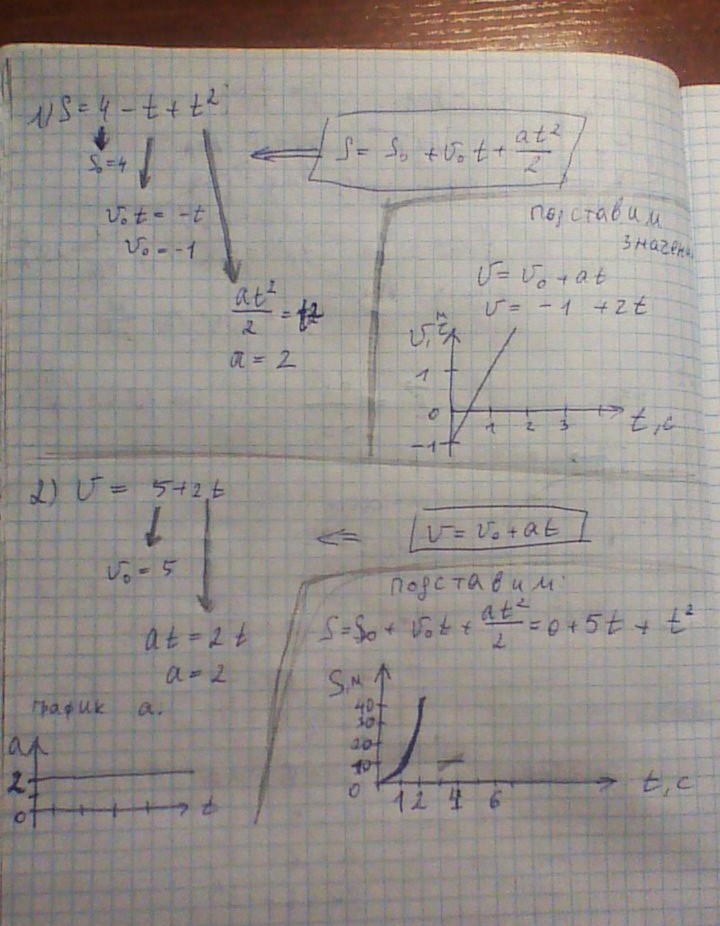 1) S = 4 - t + t²
S₀ = 4
v₀t = -t
v₀ = -1
at²/2 = t²
a = 2
S = S₀ + v₀t + at²/2
подставим
значени
v = v₀ + at
v = -1 + 2t
v, м/с
1
0
-1
1 2 3
t, c
2) v = 5 + 2t
v₀ = 5
at = 2t
a = 2
v = v₀ + at
подставим:
S = S₀ + v₀t + at²/2 = 0 + 5t + t²
график a.
a
2
0
t
S, м
40
30
20
10
0
1 2 4 6
t, c